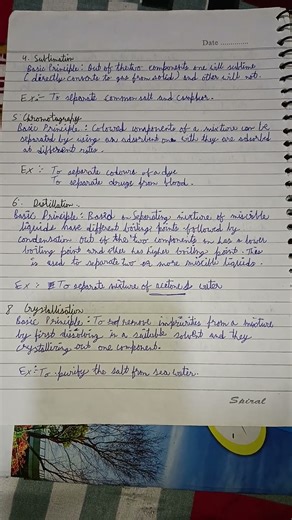 Date ..............
4. Sublimation
Basic Principle : Out of the two components one will sublime
( directly converts to gas from solid) and other will not.
Ex:- To separate common salt and camphor.
5. Chromatography
Basic Principle : Colored components of a mixture can be
separated by using an adsorbent on with they are adsorbed
at different rates.
Ex : To separate colours of a dye
To separate drugs from blood.
6. Distillation.
Basic Principle : Based on Separating mixture of miscible
liquids have different boiling points followed by
condensation out of the two components on has a lower
boiling point and other has higher boiling point. This
is used to separate two or more miscible liquids.
Ex > To separate mixture of acetone & water
8 Crystallisation
Basic Principle : To remove impurities from a mixture
by first dissolving in a suitable solvent and they
crystallizing out one component.
Ex:- To purify the salt from sea water.
Spiral